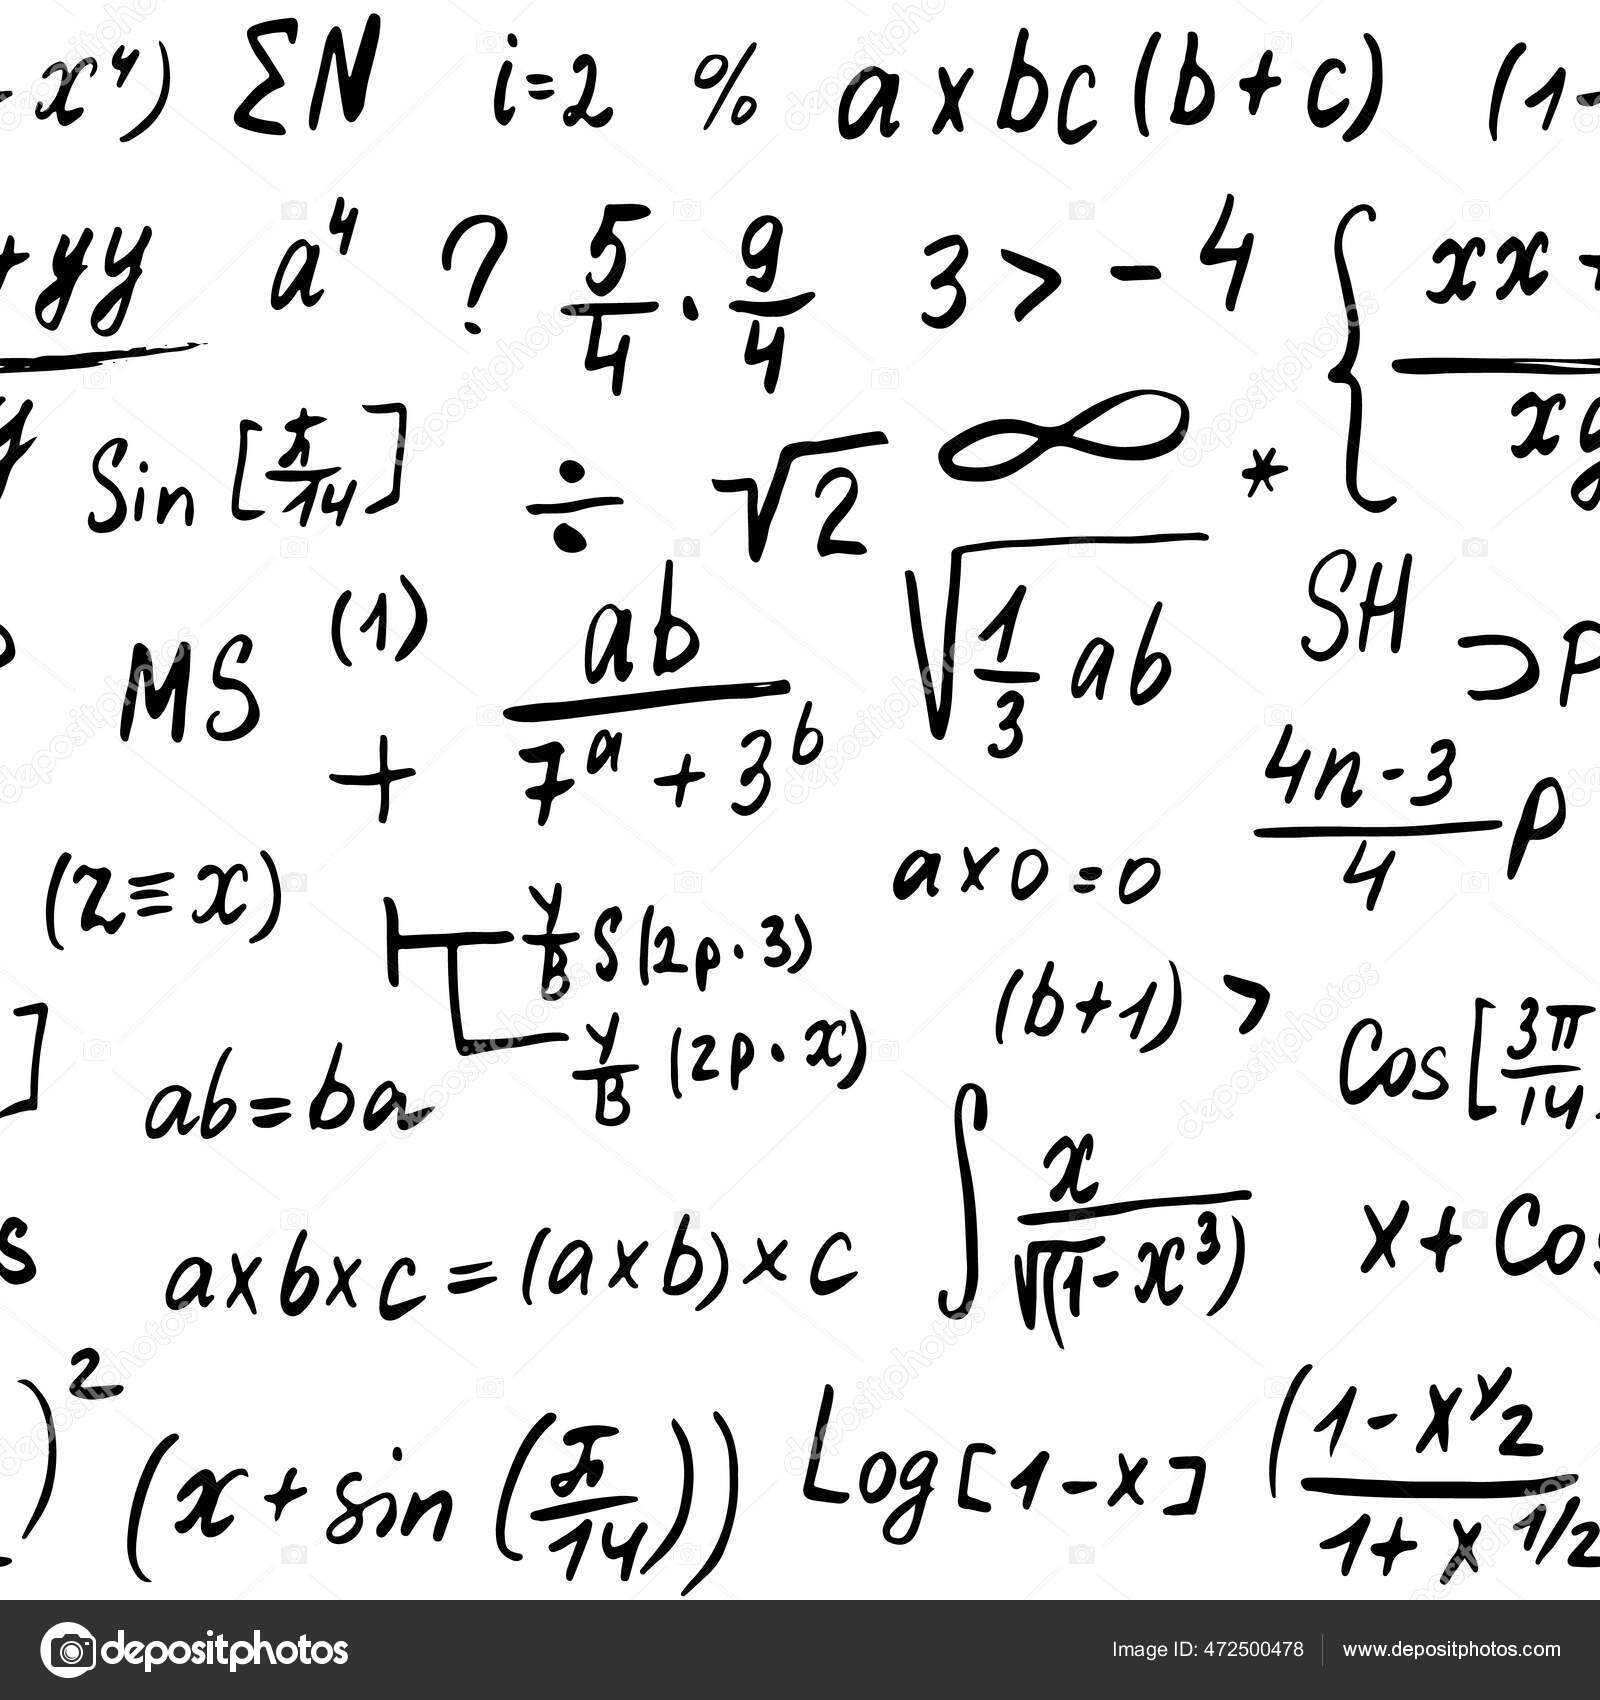 x⁴) ΣN i=2 % a×bc(b+c) (1-
+yy a⁴ ? 5/4 · 9/4 3>-4 { xx+
Sin [π/14] ÷ √2 ∞ * xy
MS (1) ab/(7ᵃ+3ᵇ) √(1/3 ab) SH ⊃P
+ (4n-3)/4 P
(z≡x) a×0=0
Y/B S(2p·3)
] Y/B (2p·x) (b+1) > Cos [3π/14
ab=ba
s a×b×c=(a×b)×c ∫ x/√(1-x³) x+Cos
)² (x+sin(π/14)) Log[1-x] (1-xʸ2 / 1+x 1/2
depositphotos Image ID: 472500478 www.depositphotos.com